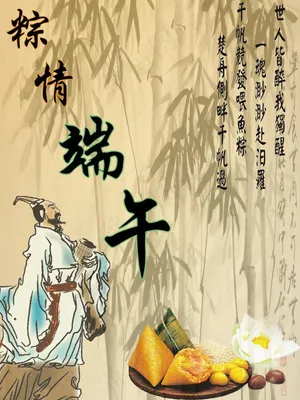 粽情
端午
世人皆醉我獨醒
一魂渺渺赴汨羅
千帆競發喂魚粽
楚舟側畔千帆過